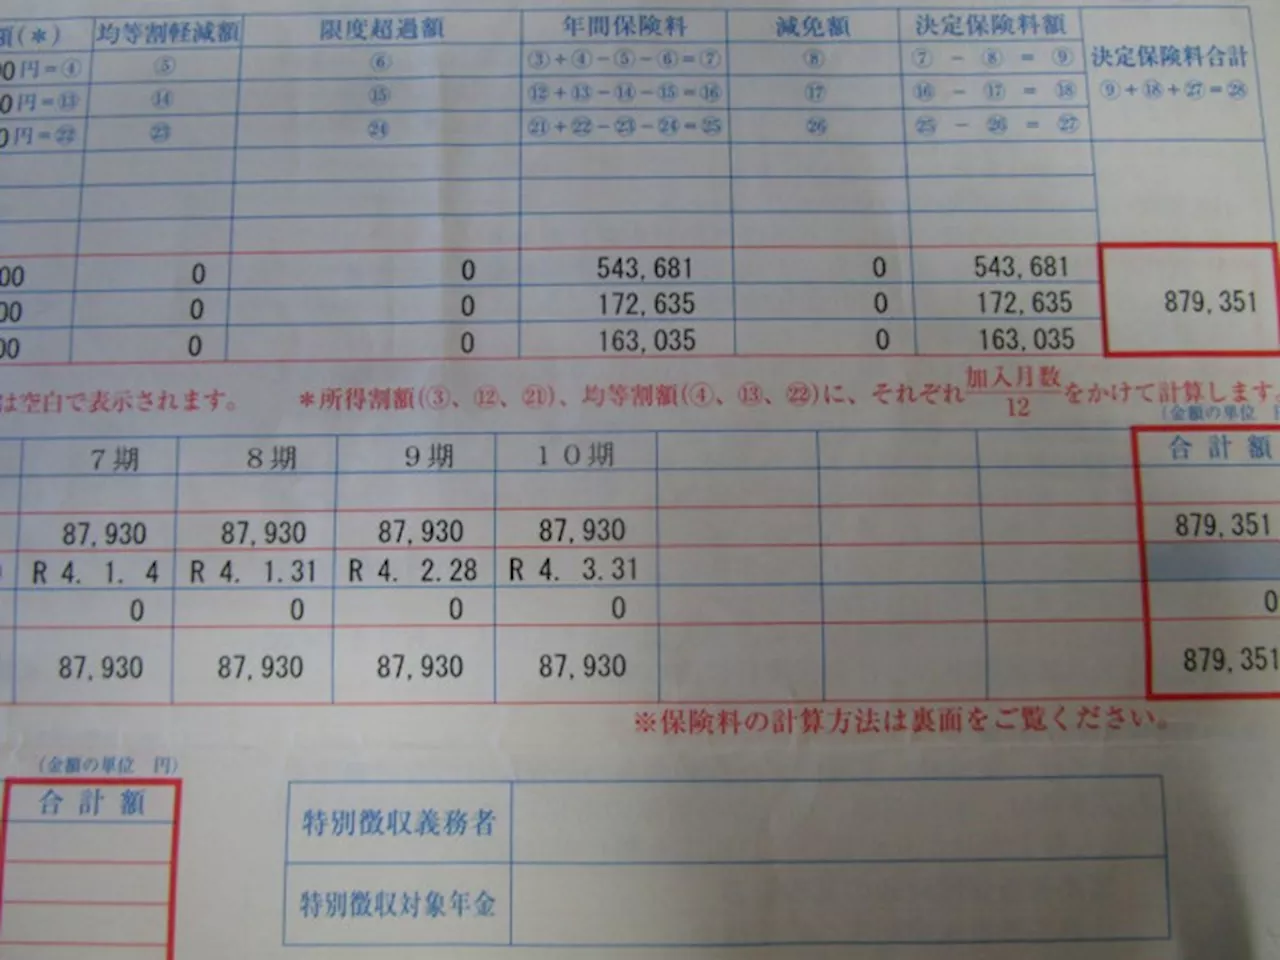 額(*) 均等割軽減額 限度超過額 年間保険料 減免額 決定保険料額 決定保険料合計
00円=④ ⑤ ⑥ ③+④-⑤-⑥=⑦ ⑧ ⑦ - ⑧ = ⑨ ⑨+⑱+㉗=㉘
0円=⑬ ⑭ ⑮ ⑫+⑬-⑭-⑮=⑯ ⑰ ⑯ - ⑰ = ⑱
0円=㉒ ㉓ ㉔ ㉑+㉒-㉓-㉔=㉕ ㉖ ㉕ - ㉖ = ㉗
00 0 0 543,681 0 543,681
00 0 0 172,635 0 172,635 879,351
00 0 0 163,035 0 163,035
は空白で表示されます。 *所得割額(③、⑫、㉑)、均等割額(④、⑬、㉒)に、それぞれ加入月数/12をかけて計算します。
(金額の単位 円
7期 8期 9期 10期 合計額
87,930 87,930 87,930 87,930 879,351
R 4. 1. 4 R 4. 1.31 R 4. 2.28 R 4. 3.31
0 0 0 0 0
87,930 87,930 87,930 87,930 879,351
※保険料の計算方法は裏面をご覧ください。
(金額の単位 円)
合計額
特別徴収義務者
特別徴収対象年金